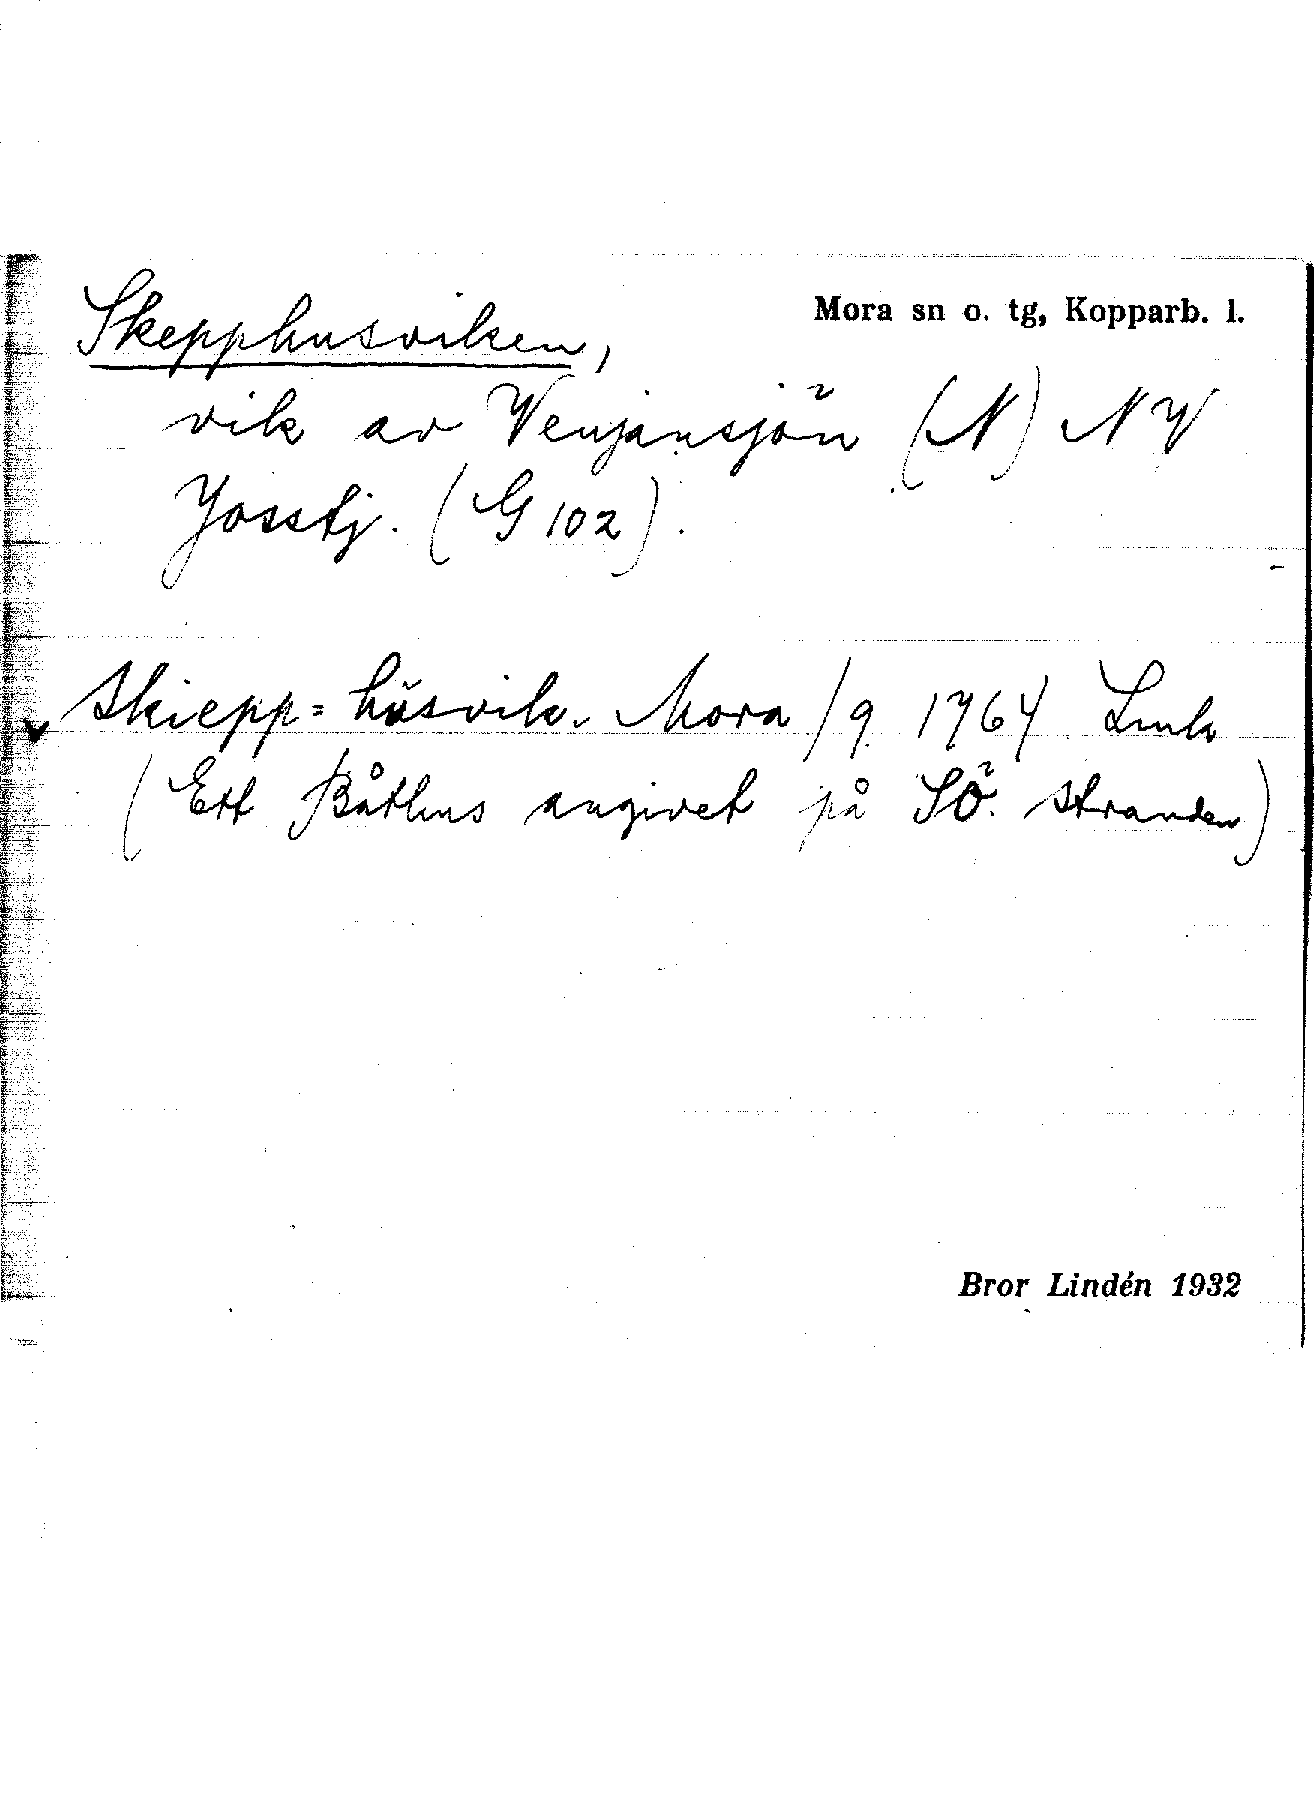 Skepphusviken,
Mora sn o. tg, Kopparb. l.
vik av Venjansjön (N) NV
Josstj. (G 102).
Skiepp=hüsvik. Mora / 9 1764 Lmk
(Ett Båthus angivet på SÖ. stranden)
Bror Lindén 1932